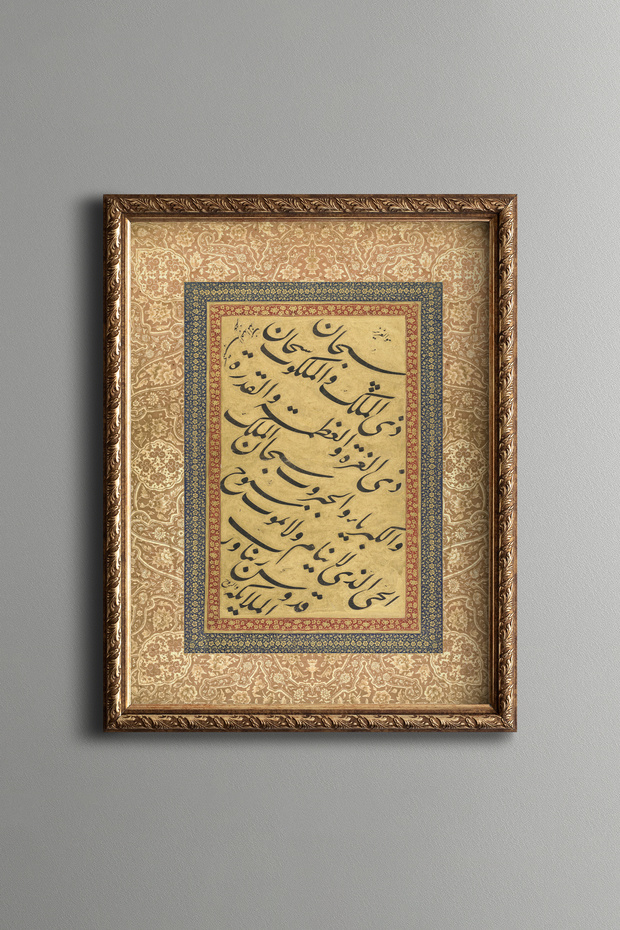 هو العزیز
سبحان
ذی الملک والملکوت سبحان
ذی العزة والعظمة والقدرة
والکبریاء والجبروت سبحان الملک
الحی الذی لا ینام ولا یموت سبوح
قدوس ربنا ورب
الملائکة والروح